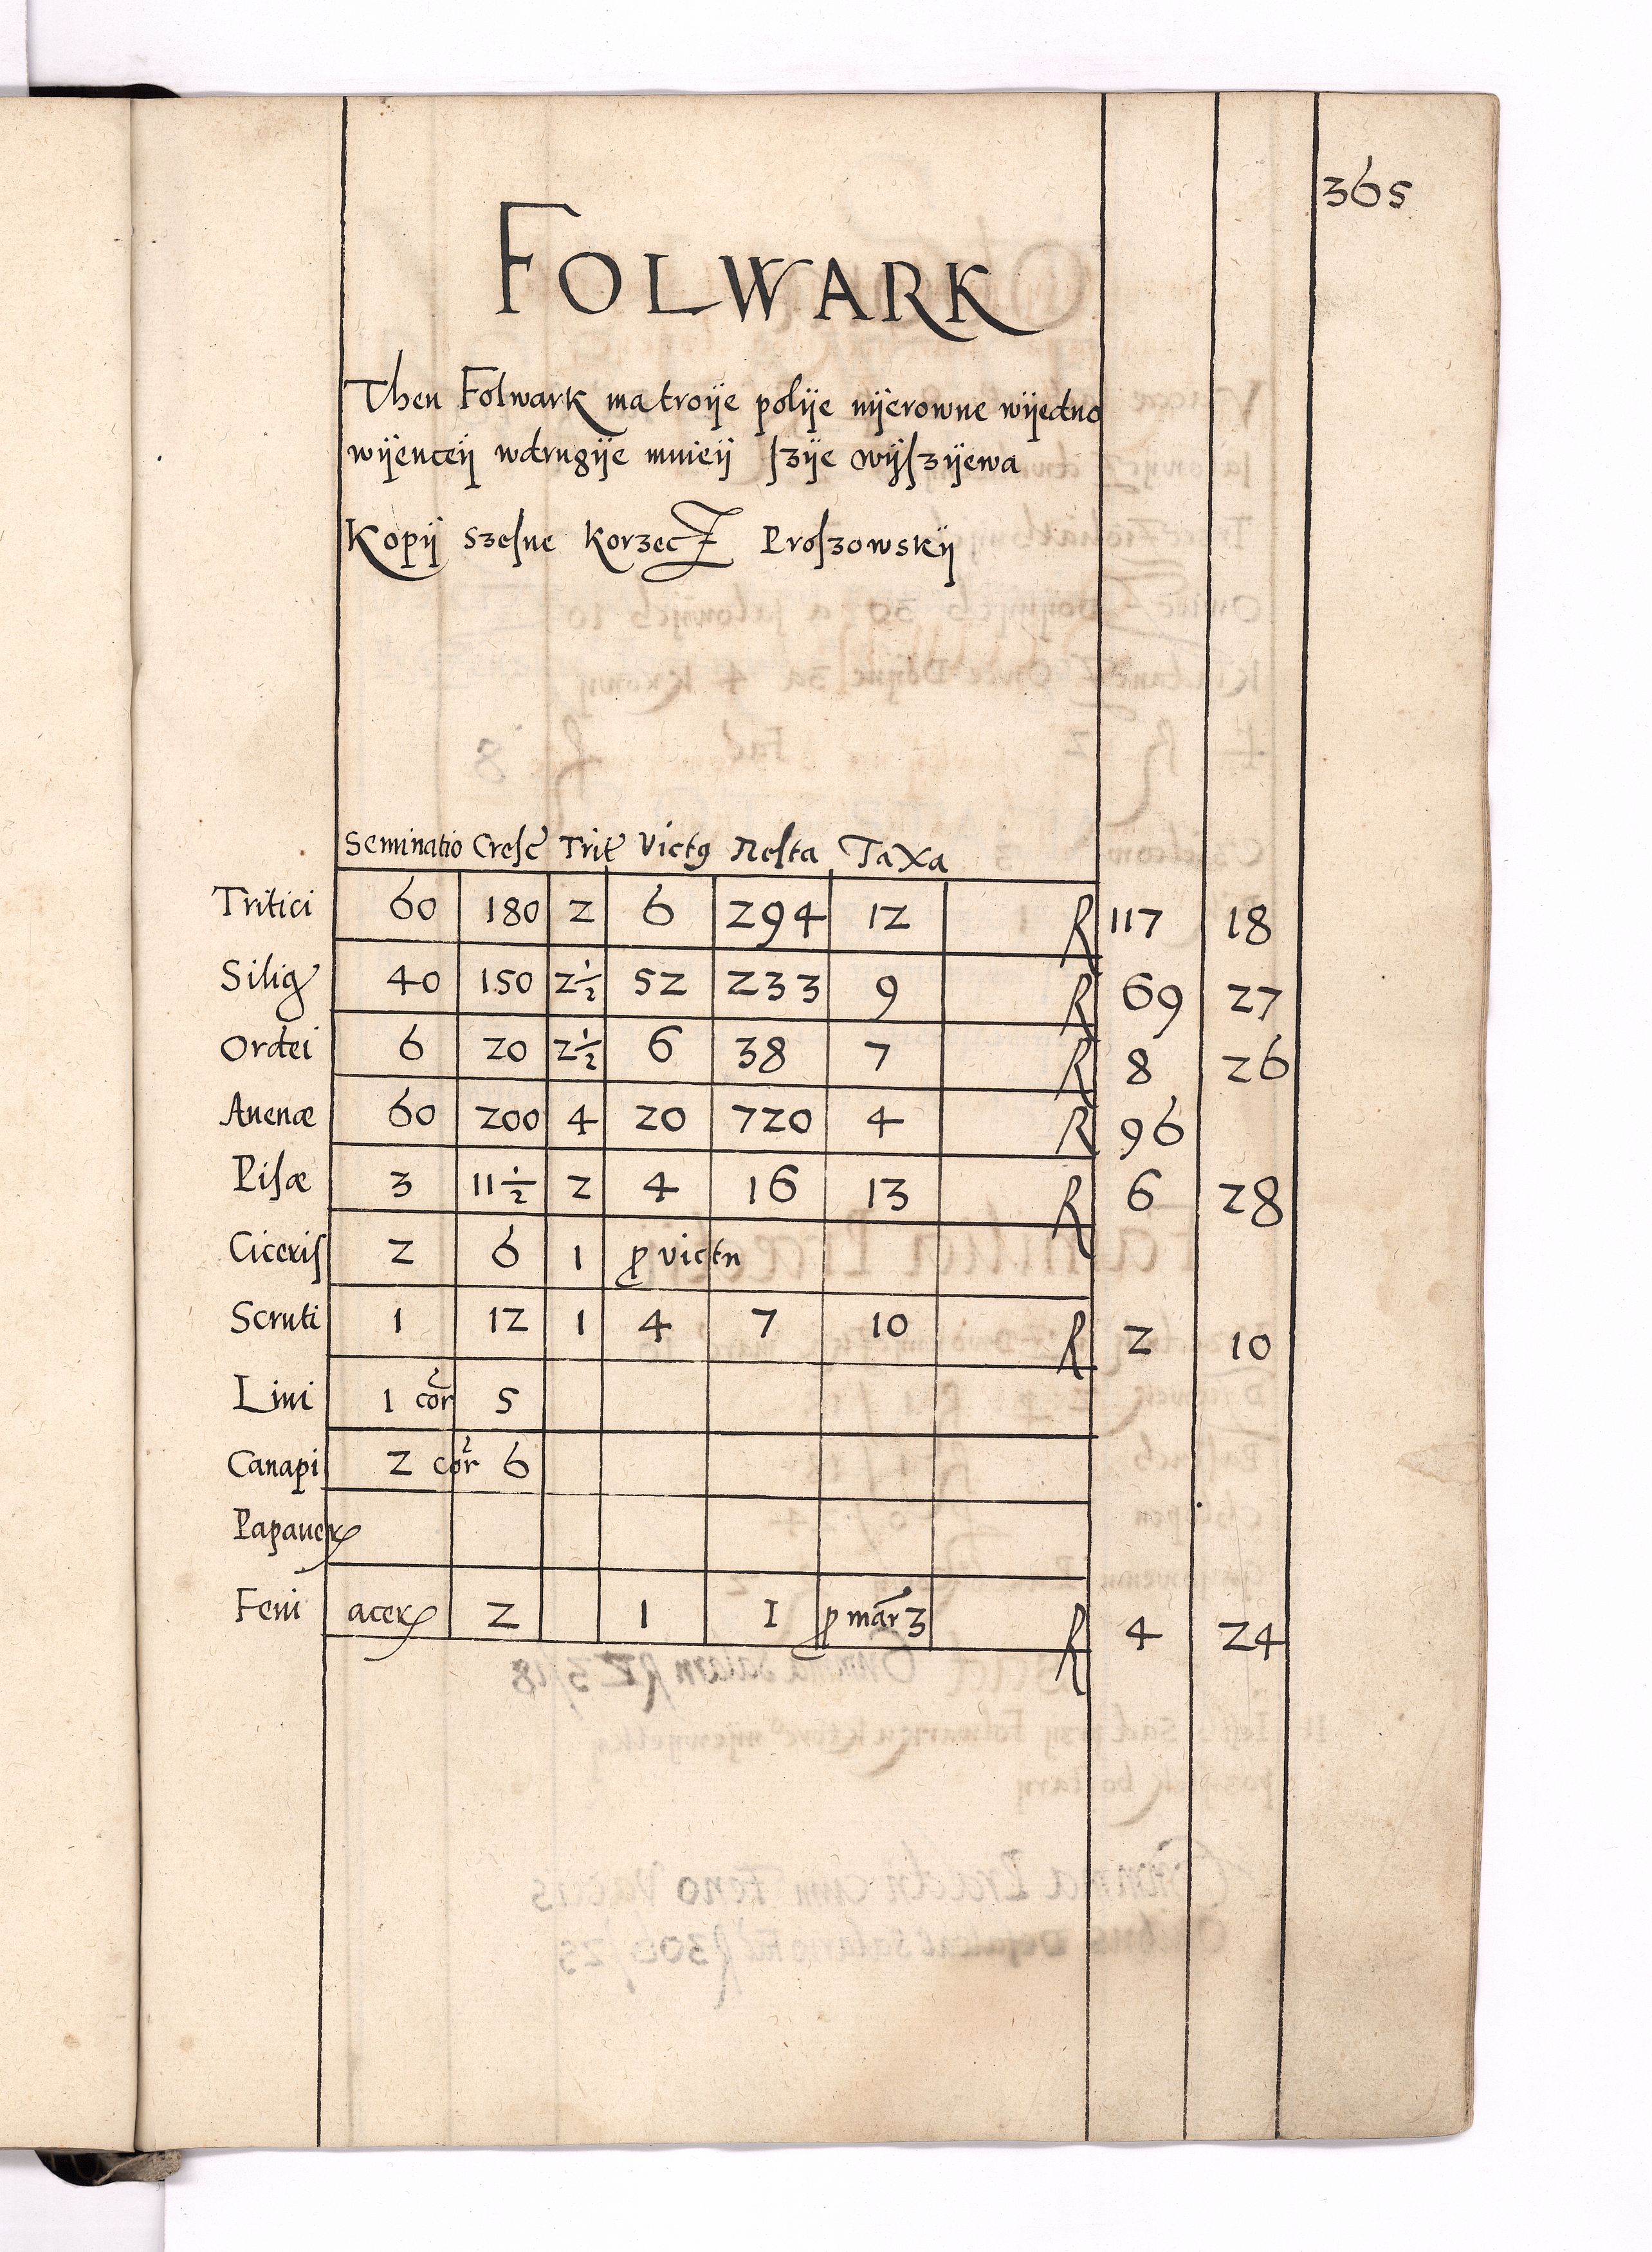 365
FOLWARK
Then Folwark ma troÿe polÿe nÿerowne wÿedno
wÿenceÿ wdrugÿe mnieÿ szÿe wÿszÿewa
Kopÿ szesne KorzecZ Proszowskÿ
Seminatio Cresc Trit Vict9 Resta Taxa
Tritici 60 180 2 6 294 12 R 117 18
Silig 40 150 2½ 52 233 9 R 69 27
Ordei 6 20 2½ 6 38 7 R 8 26
Auenæ 60 200 4 20 720 4 R 96
Pisæ 3 11½ 2 4 16 13 R 6 28
Ciceris 2 6 1 ꝓ victu
Scruti 1 12 1 4 7 10 R 2 10
Lini 1 cor 5
Canapi 2 cor 6
Papauer
Feni acer 2 1 1 ꝓ mar 3 R 4 24